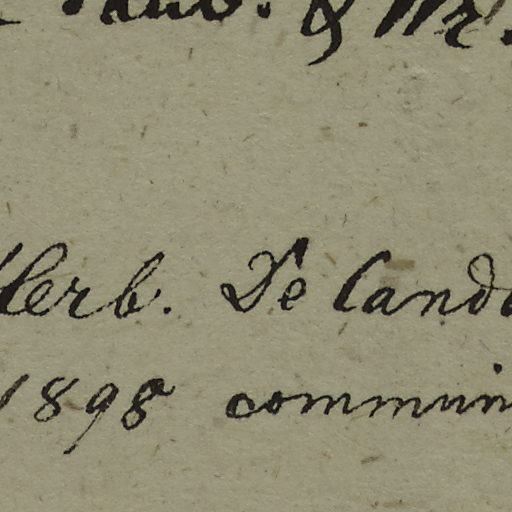 & Mr.
Herb. De Cando
1898 commun